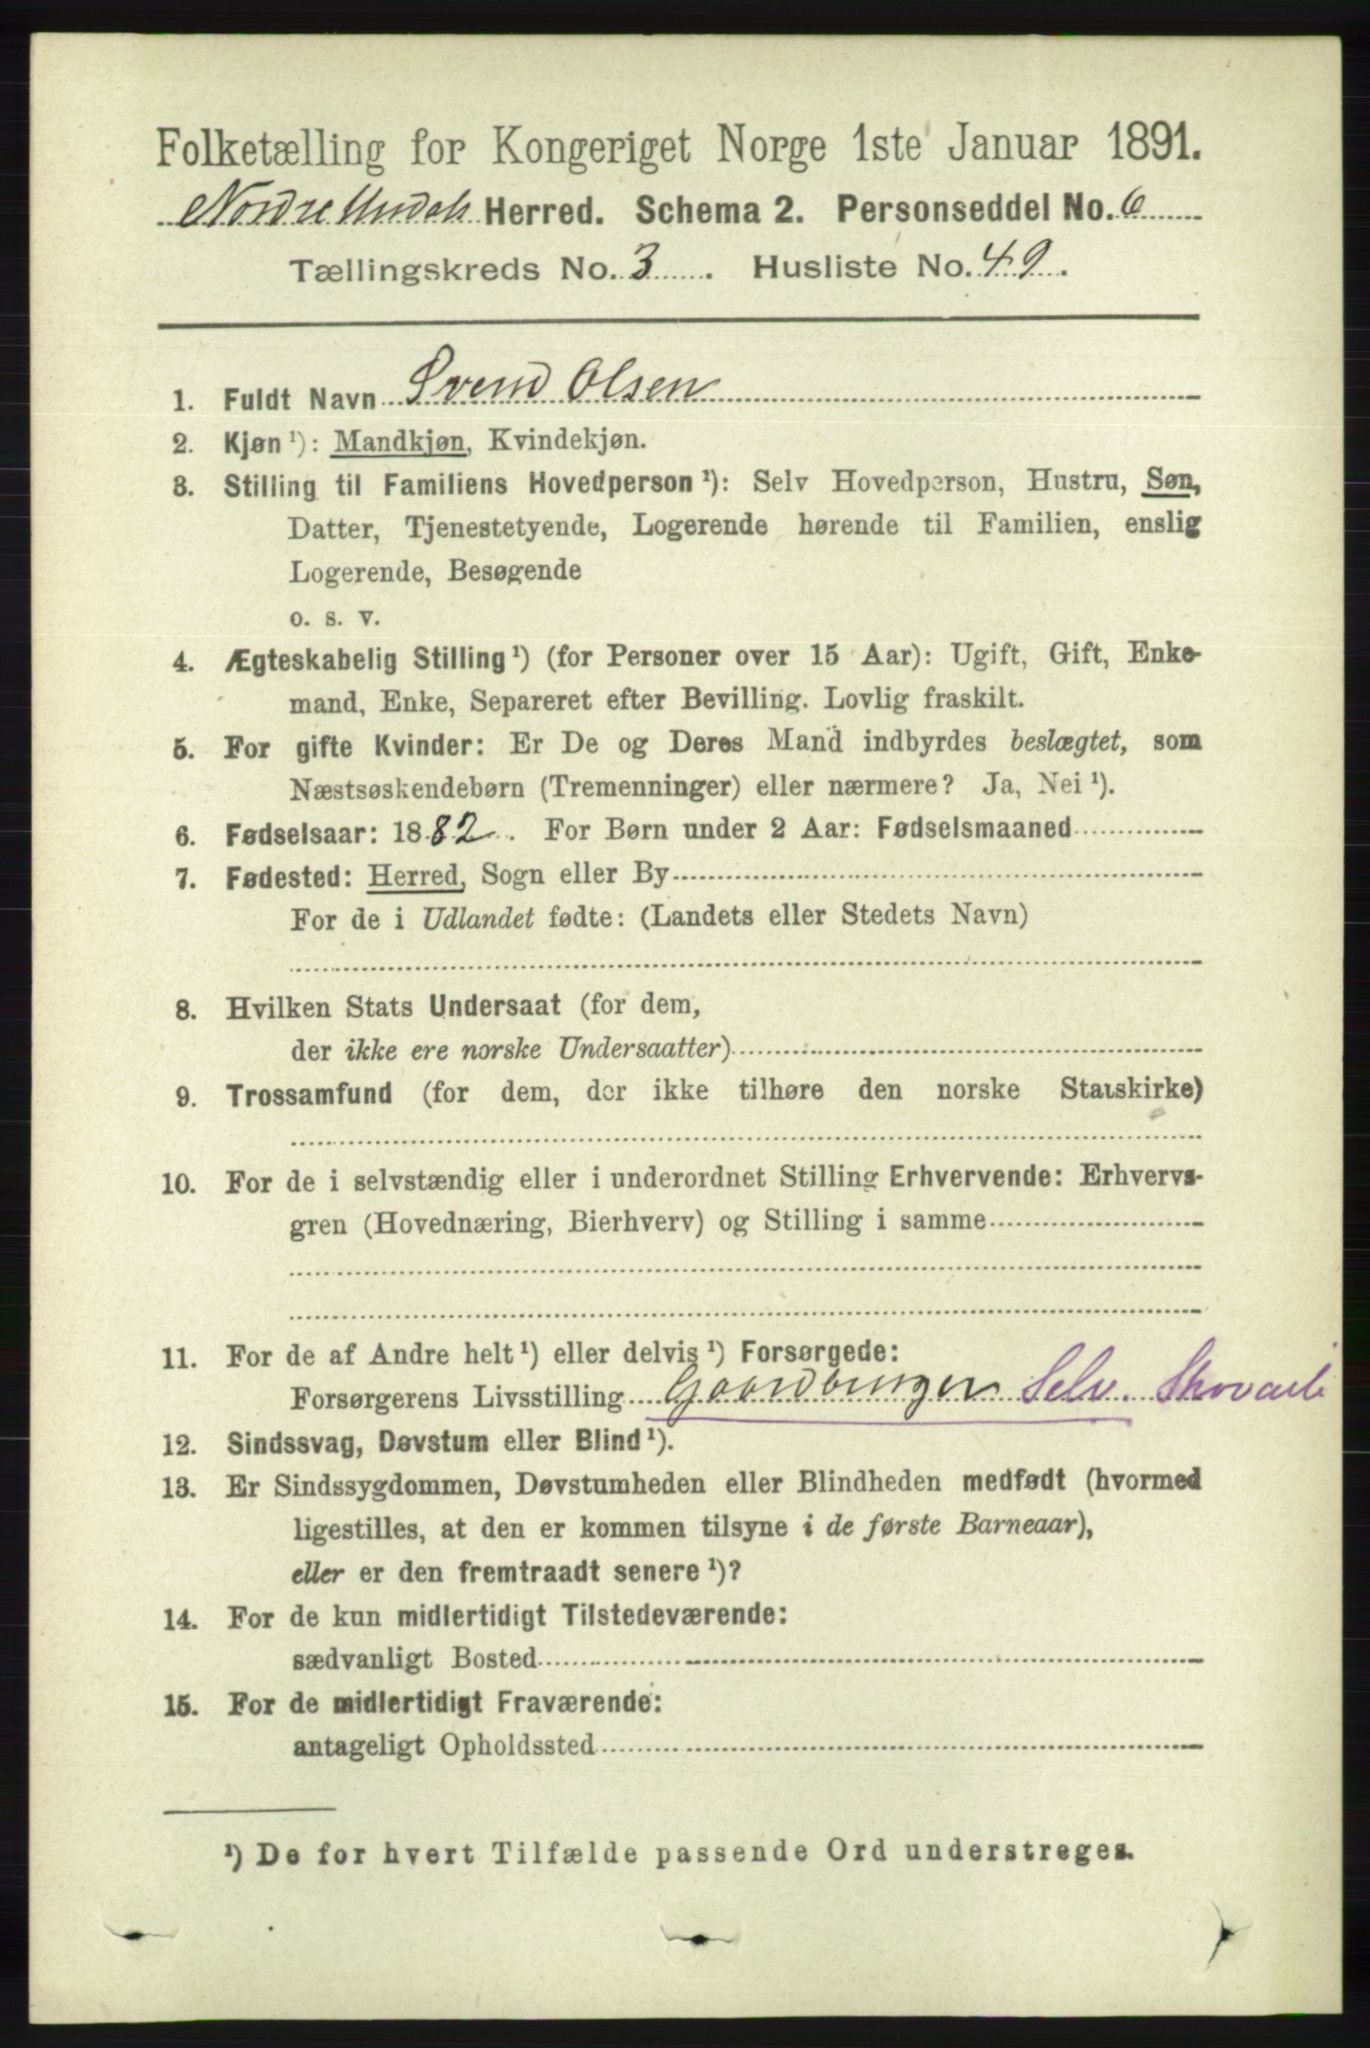 Folketælling for Kongeriget Norge 1ste Januar 1891.
Nordre Undals Herred. Schema 2. Personseddel No. 6
Tællingskreds No. 3. Husliste No. 49.
1. Fuldt Navn Svend Olsen
2. Kjøn ¹): Mandkjøn, Kvindekjøn.
3. Stilling til Familiens Hovedperson ¹): Selv Hovedperson, Hustru, Søn,
Datter, Tjenestetyende, Logerende hørende til Familien, enslig
Logerende, Besøgende
o. s. v.
4. Ægteskabelig Stilling ¹) (for Personer over 15 Aar): Ugift, Gift, Enke-
mand, Enke, Separeret efter Bevilling. Lovlig fraskilt.
5. For gifte Kvinder: Er De og Deres Mand indbyrdes beslægtet, som
Næstsøskendebørn (Tremenninger) eller nærmere? Ja, Nei ¹).
6. Fødselsaar: 1882. For Børn under 2 Aar: Fødselsmaaned
7. Fødested: Herred, Sogn eller By
For de i Udlandet fødte: (Landets eller Stedets Navn)
8. Hvilken Stats Undersaat (for dem,
der ikke ere norske Undersaatter)
9. Trossamfund (for dem, der ikke tilhøre den norske Statskirke)
10. For de i selvstændig eller i underordnet Stilling Erhvervende: Erhvervs-
gren (Hovednæring, Bierhverv) og Stilling i samme
11. For de af Andre helt ¹) eller delvis ¹) Forsørgede:
Forsørgerens Livsstilling Gaardbruger Selv. Skovarb
12. Sindssvag, Døvstum eller Blind ¹).
13. Er Sindssygdommen, Døvstumheden eller Blindheden medfødt (hvormed
ligestilles, at den er kommen tilsyne i de første Barneaar),
eller er den fremtraadt senere ¹)?
14. For de kun midlertidigt Tilstedeværende:
sædvanligt Bosted
15. For de midlertidigt Fraværende:
antageligt Opholdssted
¹) De for hvert Tilfælde passende Ord understreges.